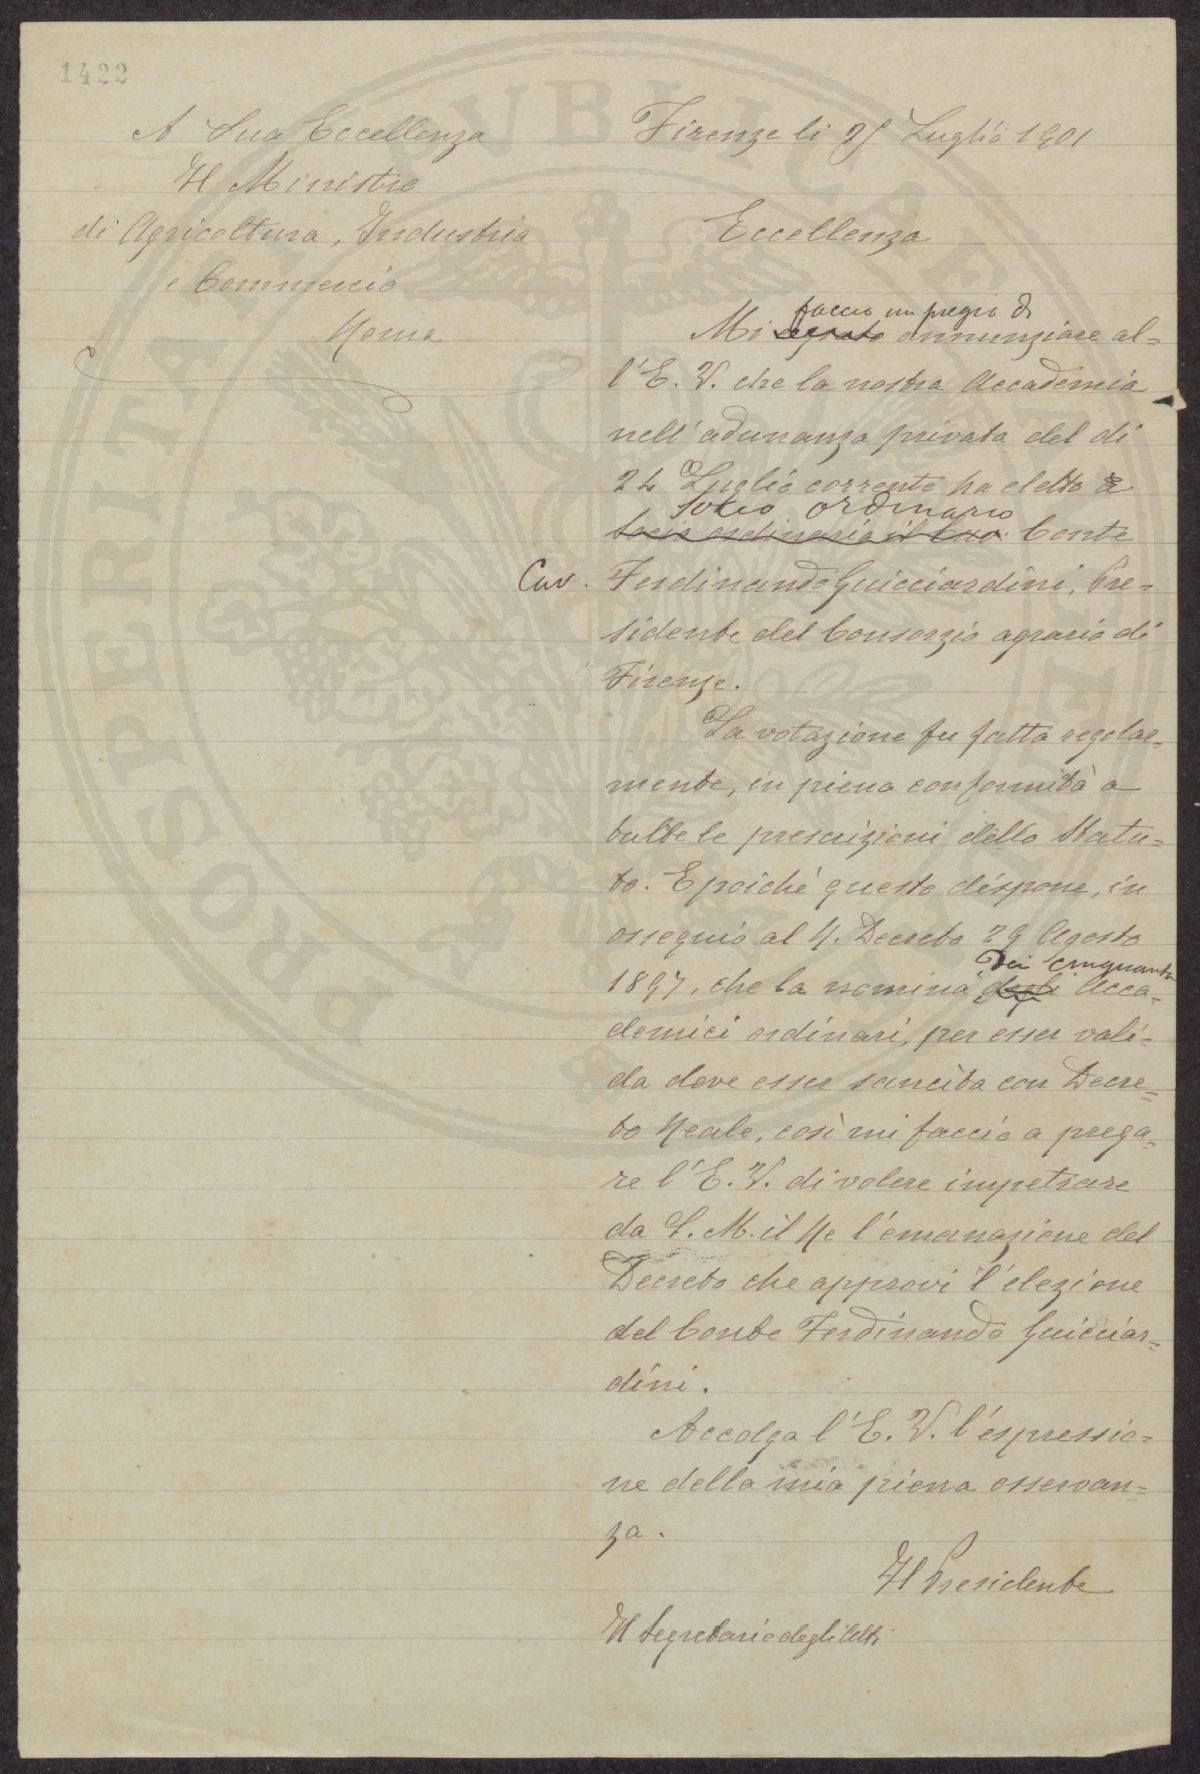 1422
A Sua Eccellenza
Il Ministro
di Agricoltura, Industria
e Commercio
Roma
Firenze li 25 Luglio 1901
Eccellenza
faccio un pregio di
Mi è grato annunziare al=
l'E. V. che la nostra Accademia
nell'adunanza privata del di
24 Luglio corrente ha eletto a
Socio ordinario
socio ordinario il Cav. Conte
Cav. Ferdinando Guicciardini, Pre=
sidente del Consorzio agrario di
Firenze.
La votazione fu fatta regolar=
mente, in piena conformità a
tutte le prescrizioni dello Statu=
to. E poichè questo dispone, in
ossequio al R. Decreto 29 Agosto
dei cinquanta
1897, che la nomina degli Acca=
demici ordinari, per esser vali=
da deve esser sancita con Decre=
to Reale, così mi faccio a prega=
re l'E. V. di volere impetrare
da S. M. il Re l'emanazione del
Decreto che approvi l'elezione
del Conte Ferdinando Guicciar=
dini.
Accolga l'E. V. l'espressio=
ne della mia piena osservan=
za.
Il Presidente
Il Segretario degli Atti